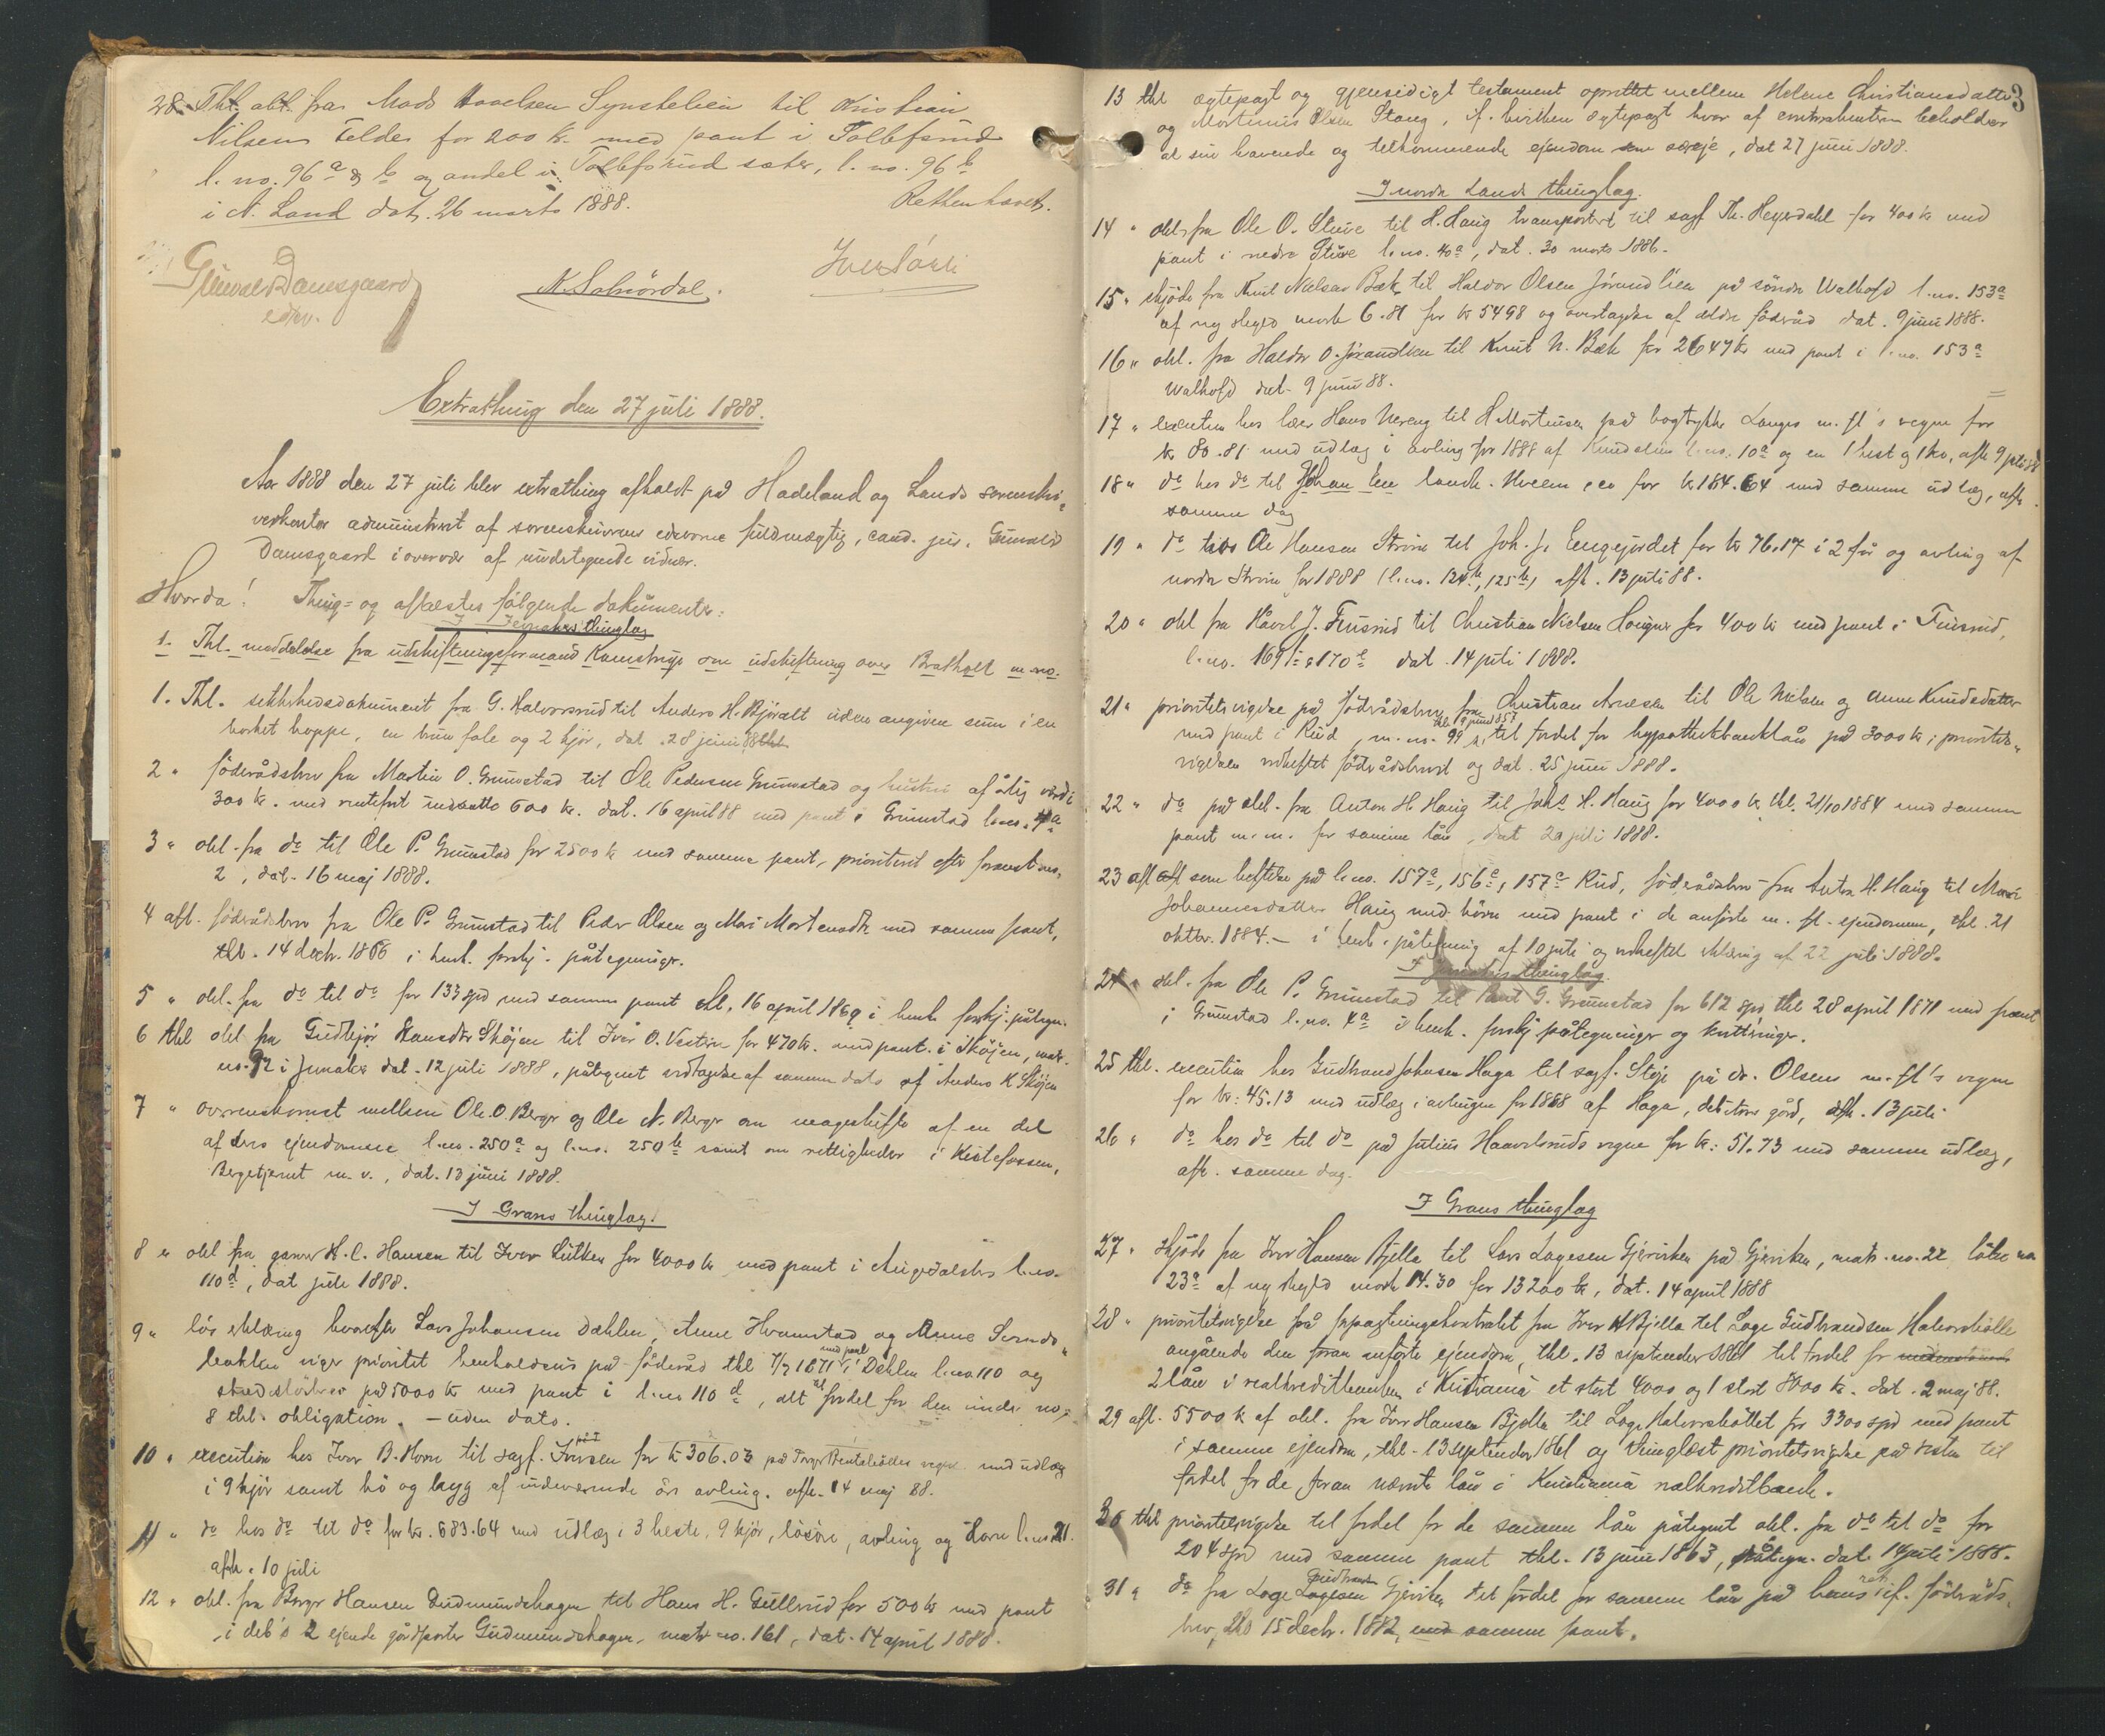 28. Thl. obl. fra Mads Haavelsen Synstelien til Kristian
Nilsen Felde for 200 kr. med pant i Tolbefsrud
l. no. 96a & b og andel i Tolbefsrud sæter, l. no. 96b
i N. Land dat. 26 marts 1888.
Retten hævet.
Gunval Damsgaard
edsv.
Extrathing den 27 juli 1888.
Aar 1888 den 27 juli blev extrathing afholdt på Hadeland og Lands sorenskri-
verkontor administreret af sorenskriverens edsvorne fuldmægtig, cand. jur. Gunvald
Damsgaard i overvær af undertegnede vidner.
Hvorda! Thing- og aflæstes følgende dokumenter:
I Jevnakers thinglag
1. Thl. meddelelse fra udskiftningsformand Kamstrup om udskiftning over Bratholt m. no.
1. Thl. sikkerhedsdokument fra G. Halvorsrud til Anders H. Bjøralt uden angiven sum i en
borket hoppe, en brun fole og 2 kjør, dat. 28 juni 88
2 " föderådsbrev fra Martin O. Grumstad til Ole Pedersen Grumstad og hustru af årlig værdi
300 kr. med rentefrit indsatte 600 kr. dat. 16 april 88 med pant i Grumstad l. no. 4a
3 " obl. fra do til Ole P. Grumstad for 2500 kr med samme pant, prioriteret efter
2, dat. 16 maj 1888.
4 afl. föderådsbrev fra Ole P. Grumstad til Peder Olsen og Mari Mortensdtr med samme pant,
thl. 14 decbr. 1866 i henh. forskj. påtegninger.
5 " obl. fra do til do for 133 spd med samme pant thl. 16 april 1869 i henh. forskj. påtegn.
6 thl obl fra Gudbjør Hansdtr Skøjen til Iver O. Vestrum for 470 kr. med pant i Skøjen, matr.
no. 92 i Jevnaker dat. 12 juli 1888, påtegnet vedtagelse af samme dato af Anders K. Skøjen
7 " overenskomst mellem Ole O. Berger og Ole N. Berger om mageskifte af en del
af deres ejendomme l. no. 250a og l. no. 250b samt om rettigheder i Kistefossen,
Bergetjernet m. v., dat. 13 juni 1888.
I Grans thinglag.
8 " obl fra garver H. C. Hansen til Iver Lütken for 4000 kr med pant i Augedalsbro l. no.
110d, dat juli 1888.
9 " løs erklæring hvorefter Lars Johansen Dæhlen, Anne Hvamstad og Anne Svends-
bakken viger prioritet henholdsvis på föderåd thl 7/7 1871 med pant i Dæhlen l. no 110 og
på 5000 kr med pant i l. no 110d, alt til fordel for den under no.
8 thl. obligation. – uden dato.
10 " execution hos Iver B. Horn til sagf. Iversen for kr 306.03 på vegne med udlæg
i 9 kjør samt hø og byg af indeværende års avling. afh. 14 maj 88.
11 " do hos do til do for kr. 683.64 med udlæg i 3 heste, 9 kjør, løsøre, avling og Horn l. no 21.
afh. 10 juli
12 " obl. fra Berger Hansen Gudmundshagen til Hans H. Gullerud for 500 kr med pant
i deb's 2 ejende gårdparter Gudmundshagen, matr no. 161, dat. 14 april 1888.
3
13 thl ægtepagt og gjensidigt testament oprettet mellem Helene Christiansdatter
og Martinius Olsen Stang, if. hvilken ægtepagt hver af contrahenterne beholder
al sin havende og tilkommende ejendom som særeje, dat 27 juni 1888.
I nordre Lands thinglag.
14 " obl. fra Ole O. Stuve til H. Haug transporteret til sagf Th. Heyerdahl for 400 kr med
pant i nedre Stuve l. no. 40a, dat. 30 marts 1886.
15 " skjøde fra Knut Nielsen Bæk til Haldor Olsen Jørandlien på søndre Walhofd l. no. 153a
af ny skyld mark 6.81 for kr 5498 og overtagelse af ældre föderåd dat. 9 juni 1888.
16 " obl. fra Haldor O. Jørandlien til Knut N. Bæk for 2647 kr med pant i l. no. 153a
Walhofd dat. 9 juni 88.
17 " execution hos læer Hans Nereng til H. Mortensen på bogtrykker Langes m. fl's vegne for
kr 80.81 med udlæg i avling for 1888 af l. no. 10a og en 1 hest og 1 ko, afh 9 juli 88
18 " do hos do til Johan Lie landh. for kr 184.64 med samme udlæg, afh.
samme dag
19 " do hos Ole Hansen Strøm til Joh. J. Engejordet for kr 76.17 i 2 får og avling af
nordre Strøm for 1888 (l. no. 124b, 125b) afh. 13 juli 88.
20 " obl fra Håvel J. Fuusrud til Christian Nielsen Hougner for 400 kr med pant i Fuusrud,
l. no. 169 & 170 dat. 14 juli 1888.
21 " prioritetsvigelse på föderådsbrev fra Christian Arnesen til Ole Nielsen og Anne Knudsdatter
med pant i Rud, m. no. 99 til fordel for hypothekbanklån på 3000 kr; prioritets-
vigelsen vedheftet föderådsbrevet og dat. 25 juni 1888.
22 " do på obl. fra Anton H. Haug til Johs H. Haug for 4000 kr, thl. 21/10 1884 med samme
pant m. m. for samme lån, dat 20 juli 1888.
23 afl som heftelse på l. no. 157a, 156a, 157a Rud, föderådsbrev fra Anton H. Haug til Mari
Johannesdatter Haug med børn med pant i de anførte m. fl. ejendomme, thl. 21
oktbr. 1884. – i henh. påtegning af 10 juli og vedheftet erklæring af 22 juli 1888.
I Jevnakers thinglag.
24 " obl. fra Ole P. Grumstad til Paul G. Grumstad for 612 spd, thl 28 april 1871 med pant
i Grumstad l. no. 4a i henh. forskj påtegninger og kvitteringer.
25 thl. execution hos Gudbrand Johnsen Haga til sagf. Støp på dr. Olsens m. fl's vegne
for kr: 45.13 med udlæg i avlingen for 1888 af Haga, debitors gård, afh. 13 juli
26 " do hos do til do på Julius Haavelsruds vegne for kr: 51.73 med samme udlæg,
afh. samme dag.
I Grans thinglag
27 " skjøde fra Iver Hansen Bjella til Lars Lagesen Gjeviken på Gjeviken, matr. no. 22 løbe no
23a af ny skyld mark 14.30 for 13200 kr, dat. 14 april 1888
28 " prioritetsvigelse på forpagtningskontrakt fra Iver H Bjella til Lage Gudbrandsen Halvorsbølle
angående den foran anførte ejendom, thl. 13 september 1861 til fordel for
2 lån i realkreditbanken i Kristiania et stort 4000 og 1 stort 8000 kr. dat. 2 maj 88.
29 afl. 5500 kr af obl. fra Iver Hansen Bjella til Lage Halvorsbøttet for 3300 spd med pant
i samme ejendom, thl. 13 september 1861 og thinglæst prioritetsvigelse på resten til
fordel for de foran nævnte lån i Kristiania realkreditbank.
30 thl prioritetsvigelse til fordel for de samme lån påtegnet obl. fra do til do for
204 spd med samme pant thl. 13 juni 1863, påtegn. dat. 14 juli 1888.
31 " do fra Lage Gudbrandsen Gjeviken til fordel for samme lån på hans ret if. föderåds-
brev, thl 15 decbr. 1882, med samme pant.